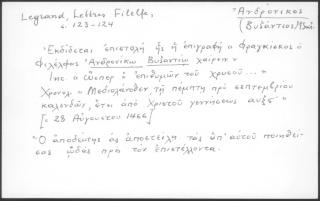 Legrand, Lettres Filelfe,
σ. 123-124
Ἀνδρόνικος
(Βυζάντιος/
Ἐκδίδεται ἐπιστολὴ ἧς ἡ ἐπιγραφὴ ὁ Φραγκίσκος ὁ
Φιλέλφος Ἀνδρονίκῳ Βυζαντίῳ χαίρειν"
Inc. ὁ ὥσπερ ὁ ἐπιθυμῶν τοῦ χρυσοῦ..."
Χρονολ. "Μεδιολάνοθεν τῇ πέμπτῃ πρὸ σεπτεμβρίου
καλενδῶν, ἔτει ἀπὸ Χριστοῦ γεννήσεως αυξς"
[= 28 Αὐγούστου 1466]
Ὁ ἀποδέκτης ἂς ἀποστείλῃ τὰς ὑπ' αὐτοῦ ποιηθεί-
σας ᾠδὰς πρὸς τὸν ἐπιστέλλοντα.